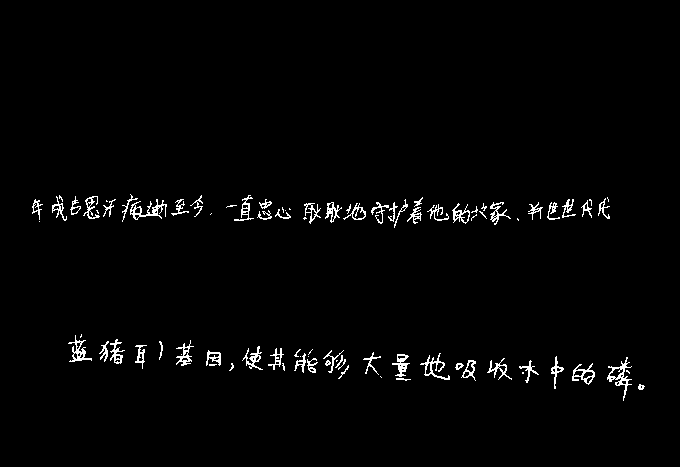 年成吉思汗病逝至今,一直忠心耿耿地守护着他的坟冢、并世世代代
蓝猪耳)基因,使其能够大量地吸收水中的磷。